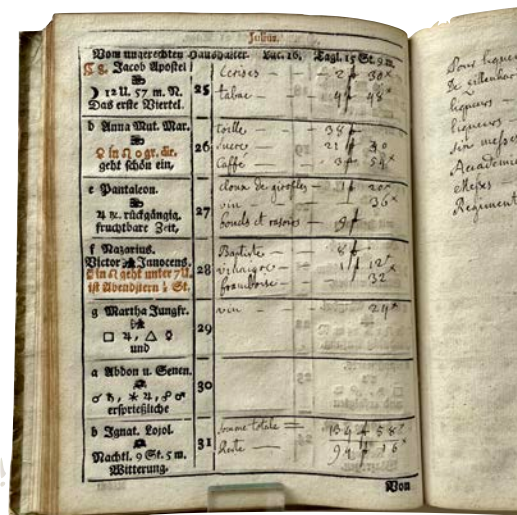 Julius.
Vom ungerechten Haushalter. Luc. 16. Tagl. 15 St. 9 m.
C 8. Jacob Apostel
☽ 12 U. 57 m. N.
Das erste Viertel.
25
Cerises — — 2 f 30 x
tabac — — 4 f 48 x
d Anna Mut. Mar.
♀ in ♌ 0 gr. dir.
geht schön ein,
26
toille — — 38 f
sucre — — 21 f
Caffé — — 3 f 54 x
e Pantaleon.
♃ ꝛc. rückgängig.
fruchtbare Zeit,
27
cloux de girofles — 1 f 20 x
vin — — 36 x
et rasoirs — 9 f
f Nazarius.
Victor Innocens.
in ♌ geht unter 7 U.
ist Abendstern ½ St.
28
Baptiste — — 8 f
vinaigre — — 1 f 12 x
framboise — 32 x
g Martha Jungfr.
□ ♃, △ ☿
und
29
vin — — 24 x
a Abdon u. Senen.
♂ ♄, ⚹ ♃, ☍ ♂
ersprießliche
30
b Ignat. Lojol.
Nachtl. 9 St. 5 m.
Witterung.
31
Somme totale = 134 f 58 x
Reste — 94 f 16 x
Von
Pour liqueu
De
liqueurs —
liqueurs —
messes
Academi
Messes
Regiment